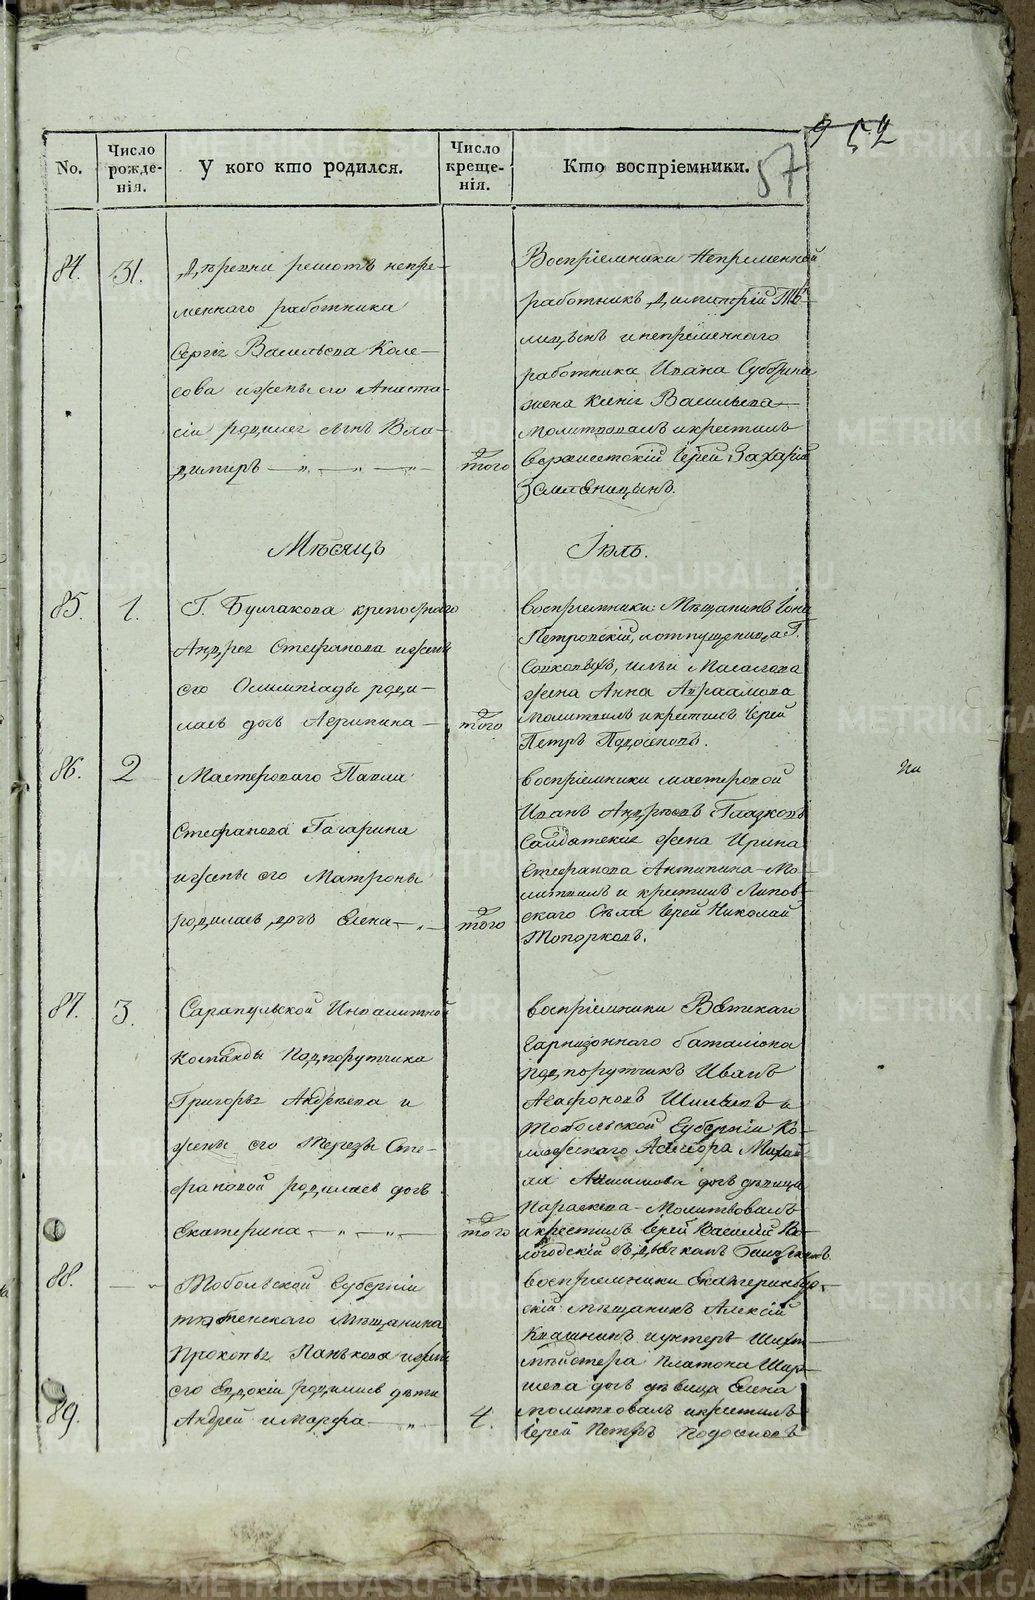 952
57
No.
Число рожденія.
У кого кто родился.
Число крещенія.
Кто воспріемники.
84.
31.
Деревни решотъ непре-
меннаго работника
Сергія Васильева Коле-
сова и жены его Анаста-
сіи родился сынъ Вла-
димиръ
того
Воспріемники Непременной
работникъ Димитрій
и непременнаго
работника Ивана
жена Васильева
молитвовалъ и крестилъ
Верхисетскій Іерей Захарій
Земляницынъ.
Мѣсяцъ
Іюль.
85.
1.
Г. Булгакова крепостнаго
Андрея Стефанова и жены
его Олимпіады роди-
лась дочь Агрипина
того
воспріемники: Мѣщанинъ Іона
Петровскій, и отпущенника Г.
жена Анна Авраамова
молитвилъ и крестилъ Іерей
Петръ Подосеновъ.
86.
2
Мастероваго Павла
Стефанова Гагарина
и жены его Матроны
родилась дочь Елена
того
воспріемники мастеровой
Иванъ Андреевъ Глазковъ
Салдатская жена Ирина
Стефанова Антипина Мо-
литвилъ и крестилъ Липов-
скаго Села Іерей Николай
Топорковъ.
На
87.
3.
Сарапульской Инвалидной
Команды Подпорутчика
Григорья Андреева и
жены его Терезы Сте-
фановой родилась дочь
Екатерина
того
воспріемники Вятскаго
Гарнизоннаго баталіона
подпорутчикъ Иванъ
Агафоновъ и
Тобольской Губерніи Ко-
лежскаго Асесора Михай-
ла дочь девица
Параскева Молитвовалъ
и крестилъ Іерей Василій Во-
логодскій съ дьячкомъ
88.
Тобольской Губерніи
тюменскаго Мещанина
Прокопья Панькова и жены
его Евдокіи родились дети
89.
Андрей и Марфа
4.
воспріемники Екатеринбур-
скій мѣщанинъ Алексій
Квашнинъ и унтеръ Шихт-
мейстера Платона
дочь девица Елена
молитвовалъ и крестилъ
Іерей Петръ Подосеновъ
METRIKI.GASO-URAL.RU